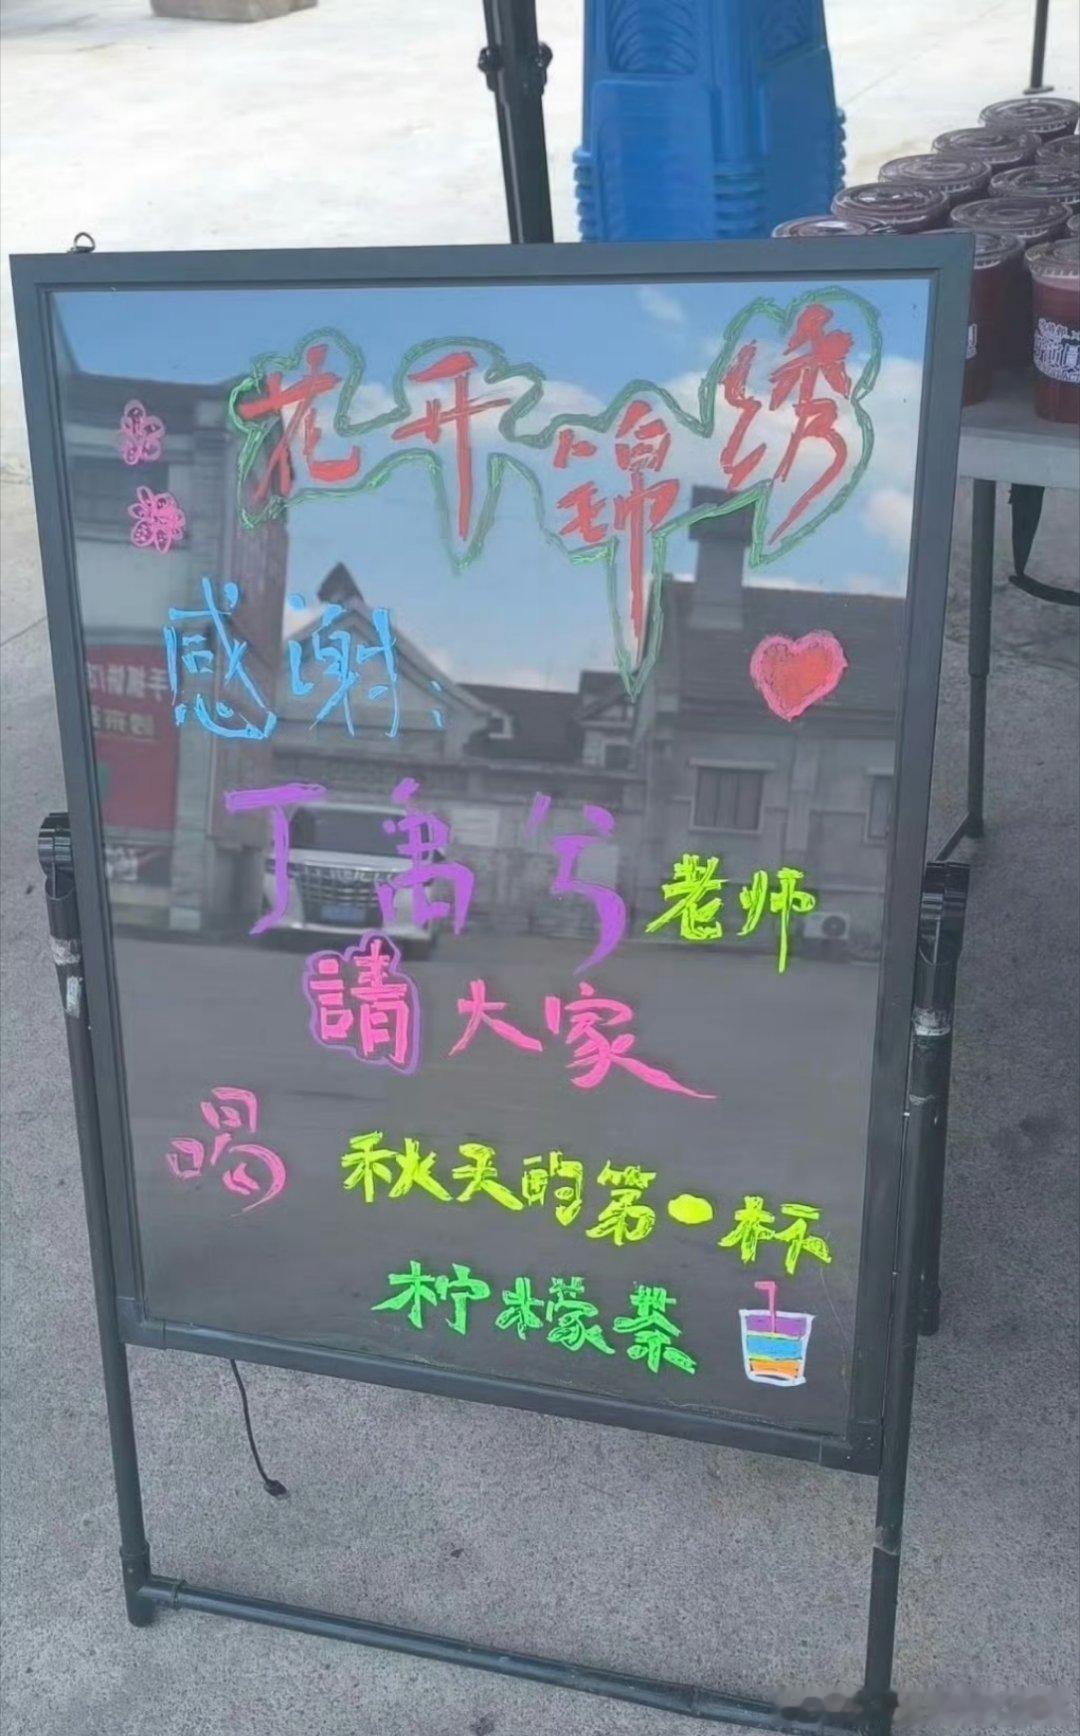 花开锦绣
感谢：
丁禹兮老师
請大家
喝 秋天的第一杯
柠檬茶